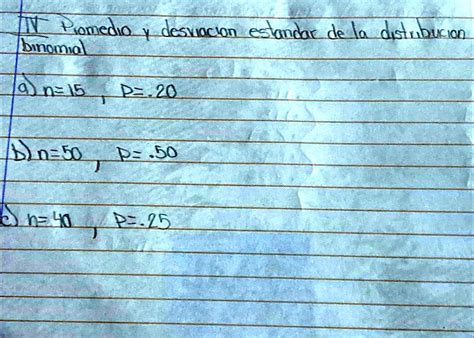 IV Promedio y desviacion estandar de la distribucion
binomial
a) n=15 , P=.20
b) n=50 , P=.50
c) n=40 , P=.25